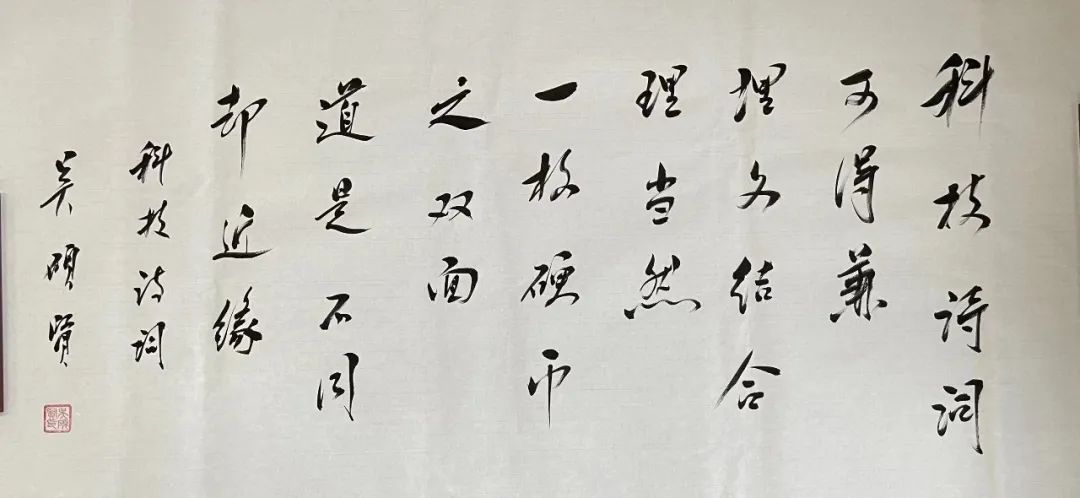 科技诗词
可得兼
理文结合
理当然
一枚硬币
之双面
道是不同
却近缘
科技诗词
吴硕贤